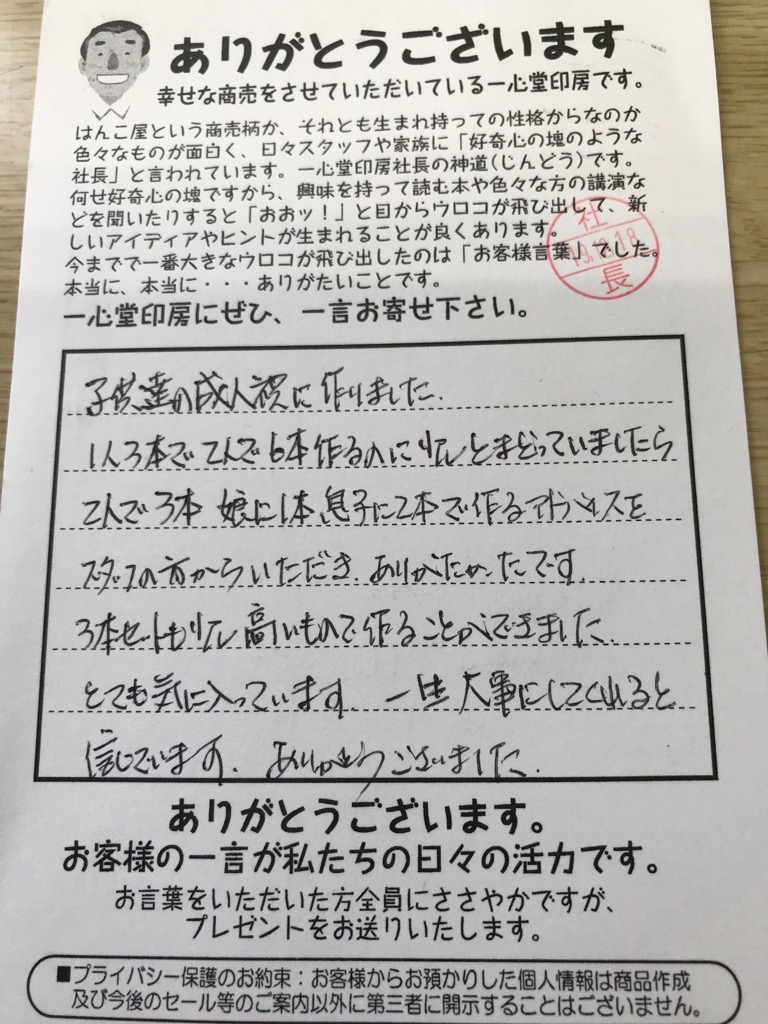 ありがとうございます
幸せな商売をさせていただいている一心堂印房です。
はんこ屋という商売柄か、それとも生まれ持っての性格からなのか
色々なものが面白く、日々スタッフや家族に「好奇心の塊のような
社長」と言われています。一心堂印房社長の神道(じんどう)です。
何せ好奇心の塊ですから、興味を持って読む本や色々な方の講演な
どを聞いたりすると「おおッ！」と目からウロコが飛び出して、新
しいアイディアやヒントが生まれることが良くあります。
今までで一番大きなウロコが飛び出したのは「お客様言葉」でした。
本当に、本当に・・・ありがたいことです。
社
長
一心堂印房にぜひ、一言お寄せ下さい。
子供達の成人祝に作りました.
1人3本で2人で6本作るのに少しとまどっていましたら
2人で3本 娘に1本 息子に2本で作るアドバイスを
スタッフの方からいただき、ありがたかったです.
3本セットも少し高いもので作ることができました.
とても気に入っています. 一生大事にしてくれると
信じています. ありがとうございました.
ありがとうございます。
お客様の一言が私たちの日々の活力です。
お言葉をいただいた方全員にささやかですが、
プレゼントをお送りいたします。
■プライバシー保護のお約束：お客様からお預かりした個人情報は商品作成
及び今後のセール等のご案内以外に第三者に開示することはございません。